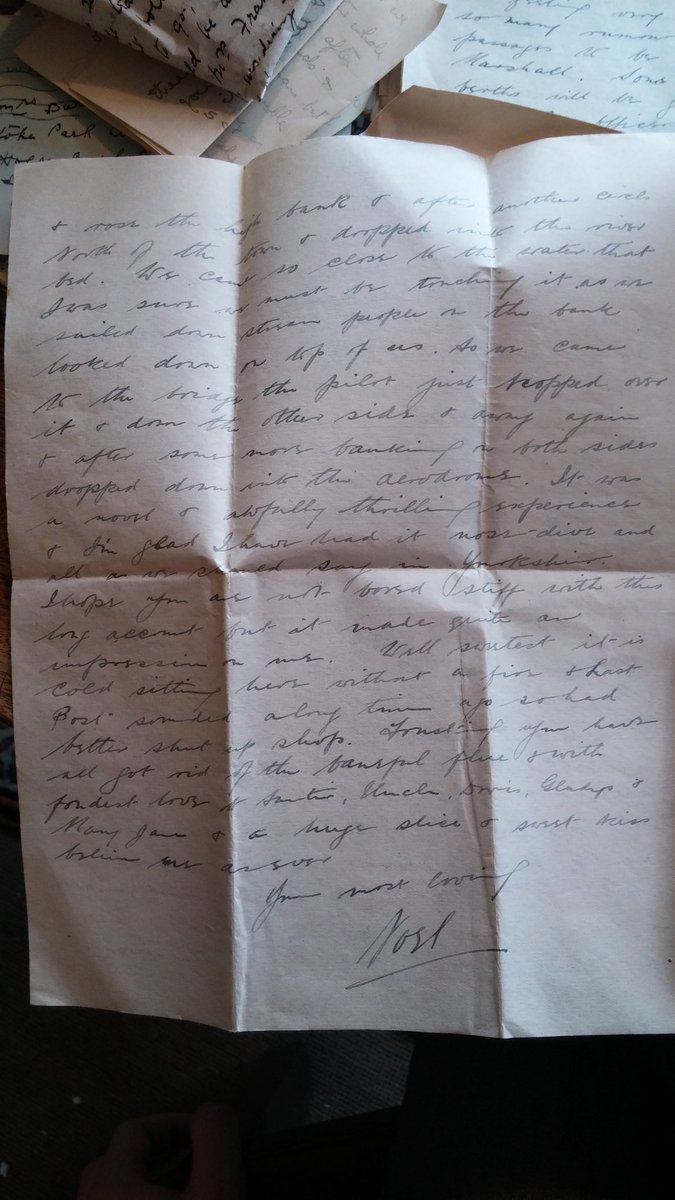 & rose the high bank & after another circle
North of the town & dropped into the river
bed. We came so close to the water that
I was sure we must be touching it as we
sailed down stream people on the bank
looked down on top of us. As we came
to the bridge the pilot just hopped over
it & down the other side & away again
& after some more banking on both sides
dropped down into the aerodrome. It was
a novel & awfully thrilling experience
& I'm glad I have had it nose-dive and
all as we should say in Yorkshire.
I hope you are not bored stiff with this
long account but it made quite an
impression on me. Well sweetest it is
cold sitting here without a fire & Last
Post sounded a long time ago so had
better shut up shop. Trusting you have
all got rid of the baneful flue & with
fondest love to Auntie, Uncle, Doris, Gladys &
Mary Jane & a huge slice & sweet kiss
believe me as ever
Your most loving
Noel
so many rumou
passages to be
Marshall. Some
berths will be
Park